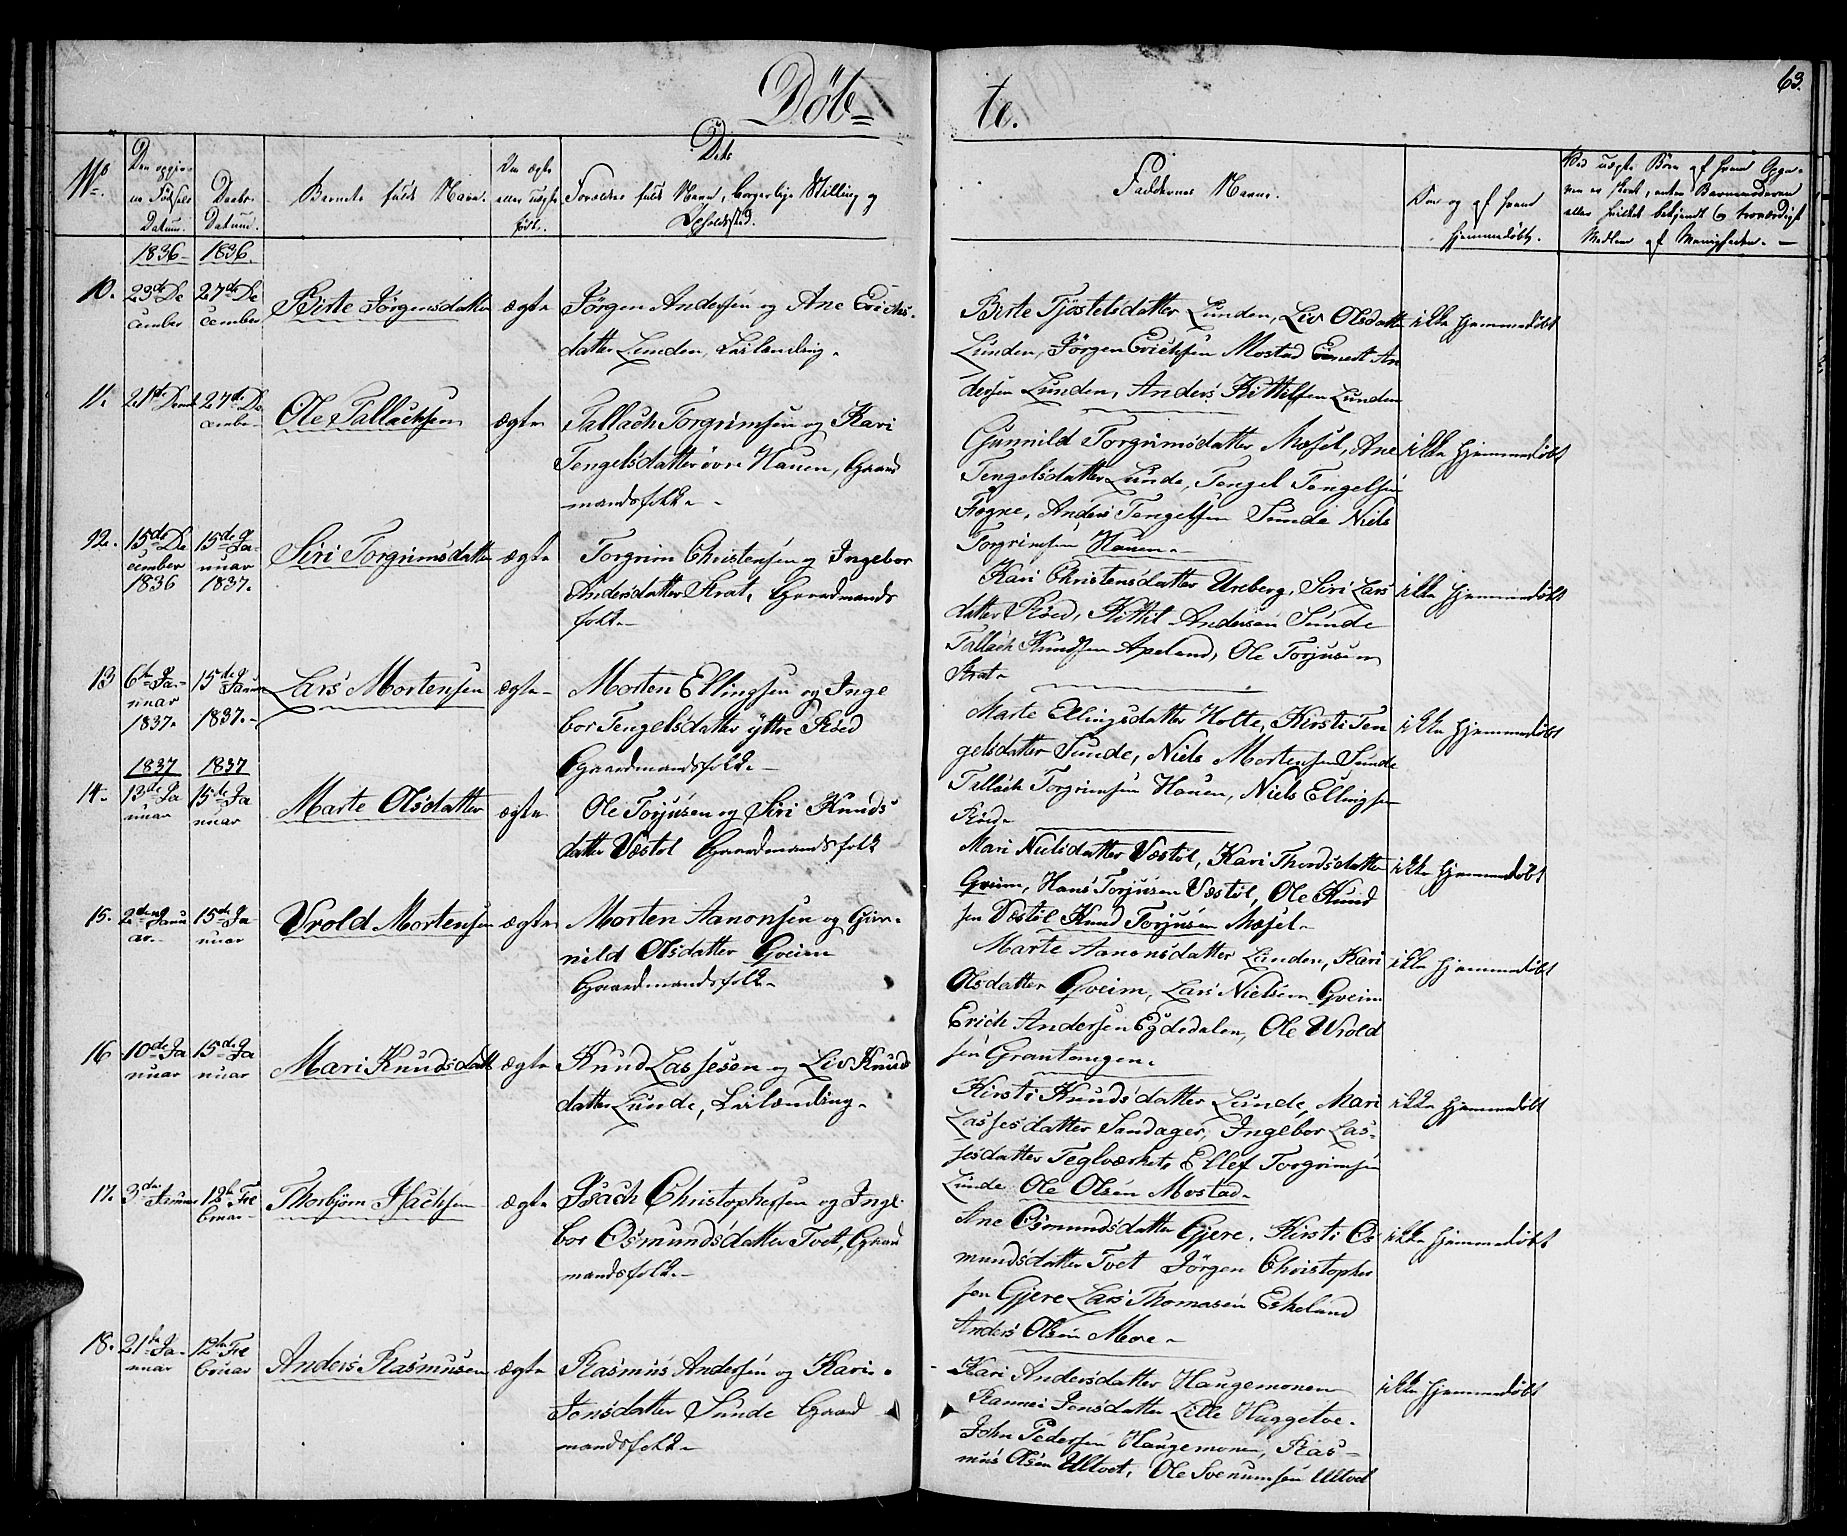 63.
Døb=
te.
No.
Den opgiv=
ne Fødsels
Datum.
Daabs
Datum.
Barnets fulde Navn.
Om ægte
eller uægte
født.
Dets
Forældres fulde Navn, borgerlige Stilling og
Opholdssted.
Faddernes Navne.
Om og af hvem
hjemmedøbt.
Ved uægte Børn af hvem Opga-
ven er skeet, enten Barnemoderen
eller hvilket bekjendt og troværdigt
Medlem af Menigheden. —
1836 1836.
10. 23de De
cember
27de De
cember
Birte Jørgensdatter
ægte
Jørgen Andersen og Ane Erichs-
datter Lunden, Leilænding.
Birte Tjøstelsdatter Lunden, Liv Olsdatter
Lunden, Jørgen Erichsen Mostad Enedt An
dersen Lunden, Anders Kittelsen Lunden
ikke hjemmedøbt
11. 21de Decmb
27de De
cember
Ole Tallachsen
ægte
Tallach Torgrimsen og Kari
Tengelsdatter øvre Hauen, Gaard
mandsfolk.
Gunnild Torgrimsdatter Møsel, Ane
Tengelsdatter Lunde, Tengel Tengelsen
Fogne, Anders Tengelsen Sunde Niels
Torgrimsen Hauen.
ikke hjemmedøbt
12. 15de De
cember
1836
15de Ja-
nuar
1837.
Siri Torgrimsdatter
ægte
Torgrim Christensen og Ingebor
Andersdatter Strat, Gaardmands
folk.
Kari Christensdatter Ureberg, Siri Lars
datter Røed, Kittil Andersen Sunde
Tallach Knudsen Apeland, Ole Torjusen
Strat.
ikke hjemmedøbt
13 6te Ja-
nuar
1837.
15de Januar
1837.
Lars Mortensen
ægte
Morten Ellingsen og Inge
bor Tengelsdatter ÿttre Røed
Gaardmandsfolk.
Marte Ellingsdatter Holte, Kirsti Ten
gelsdatter Sunde, Niels Mortensen Sunde
Tallach Torgrimsen Hauen, Niels Ellingsen
Røed.
ikke hjemmedøbt
1837 1837
14. 13de Ja
nuar
15de Ja
nuar
Marte Olsdatter
ægte
Ole Torjusen og Siri Knuds
datter Væstøl Gaardmandsfolk
Mari Nielsdatter Væstøl, Kari Thordsdatter
Gveim, Hans Torjusen Væstøl, Ole Knud
sen Væstøl Knud Torjusen Møsel.
ikke hjemmedøbt
15. 2den Janu
ar.
15de Ja-
nuar
Vrold Mortensen
ægte
Morten Aanonsen og Gun-
nild Olsdatter Gveim
Gaardmandsfolk.
Marte Aanonsdatter Lunden, Kari
Olsdatter Gveim, Lars Nielsen Gveim
Erich Andersen Egdedalen, Ole Wrold
sen Grantangen.
ikke hjemmedøbt
16 10de Ja
nuar
15de Ja
nuar
Mari Knudsdatt
ægte
Knud Lassesen og Liv Knuds
datter Lunde, Leilænding.
Kirsti Knudsdatter Lunde, Mari
Lassesdatter Sandager, Ingebor Las-
sesdatter Teglværket, Ellef Torgrimsen
Lunde Ole Olsen Mostad.
ikke hjemmedøbt
17. 3die Januar
12te Fe
bruar
Thorbjørn Isachsen
ægte
Isach Christophersen og Inge
bor Osmundsdatter Tvet, Gaard
mandsfolk.
Ane Osmundsdatter Gjere, Kirsti Os
mundsdatter Tvet Jørgen Christopher
sen Gjere Lars Thomasen Eskeland
Anders Olsen Moe
ikke hjemmedøbt
18. 21de Ja-
nuar
12te Fe
bruar
Anders Rasmusen
ægte
Rasmus Andersen og Kari
Jonsdatter Sunde Gaard
mandsfolk.
Kari Andersdatter Haugemonen
Rannei Jensdatter Lille Huggetve.
John Pedersen Haugemonen, Ras-
mus Olsen Ultvet, Ole Svenumsen Ultvet
ikke hjemmedøbt